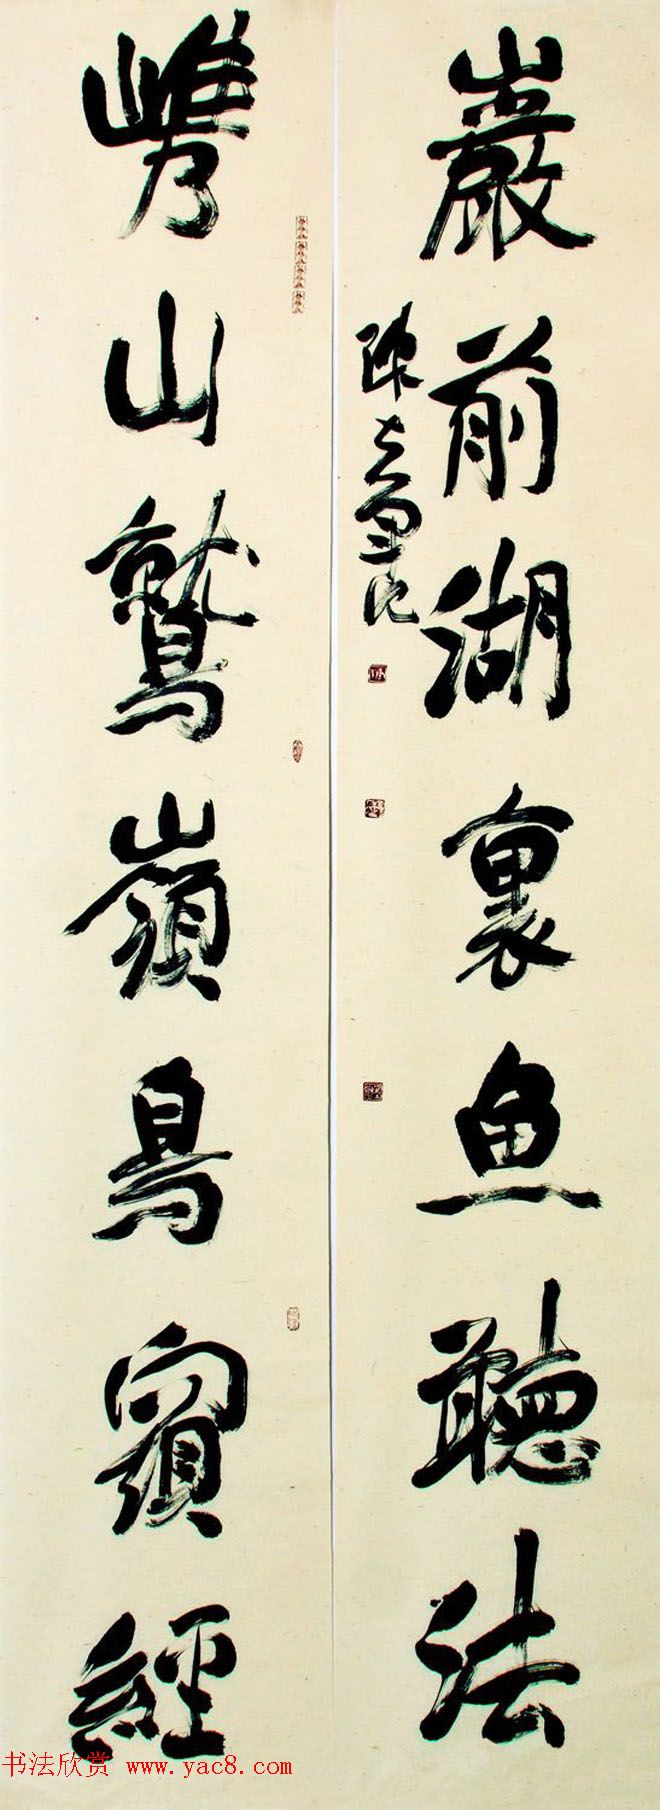 巖前湖裏鱼聽法
山鷲嶺鳥經
书法欣赏 www.yac8.com